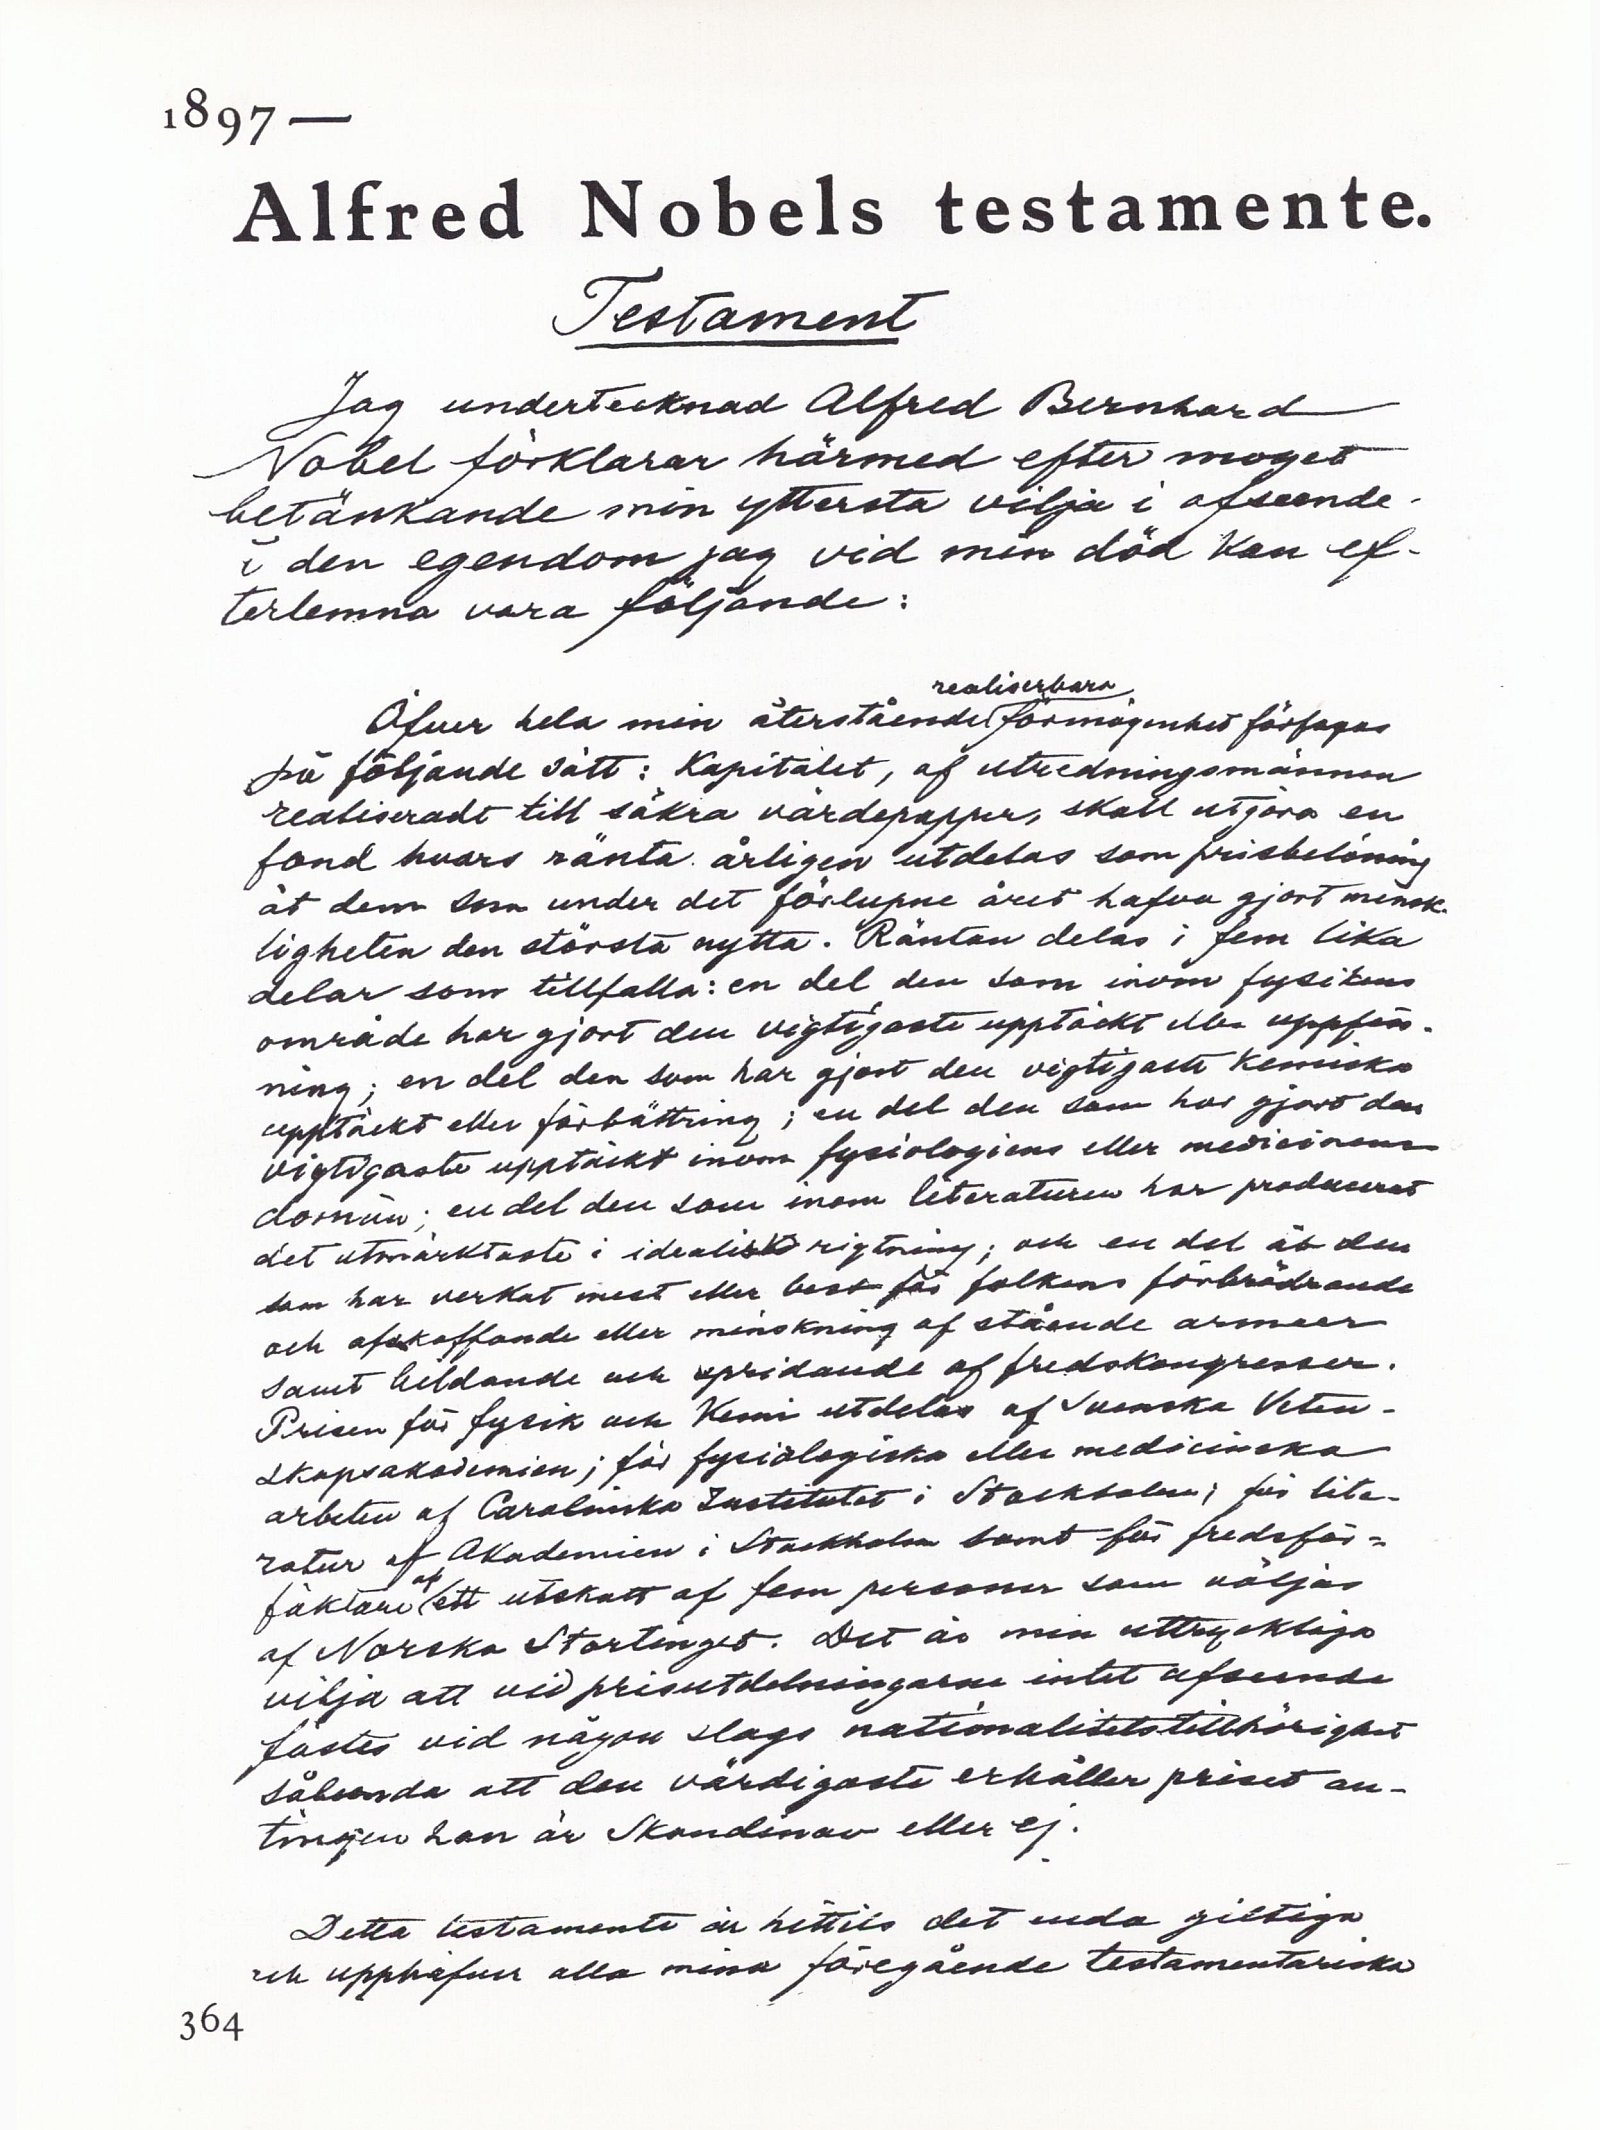 1897—
Alfred Nobels testamente.
Testament
Jag undertecknad Alfred Bernhard
Nobel förklarar härmed efter moget
betänkande min yttersta vilja i afseende
å den egendom jag vid min död kan ef-
terlemna vara följande:
realiserbara
Öfver hela min återstående förmögenhet förfogas
på följande sätt: Kapitalet, af utredningsmännen
realiseradt till säkra värdepapper, skall utgöra en
fond hvars ränta årligen utdelas som prisbelöning
åt dem som under det förlupne året hafva gjort mensk-
ligheten den största nytta. Räntan delas i fem lika
delar som tillfalla: en del den som inom fysikens
område har gjort den vigtigaste upptäckt eller uppfin-
ning; en del den som har gjort den vigtigaste kemiska
upptäckt eller förbättring; en del den som har gjort den
vigtigaste upptäckt inom fysiologiens eller medicinens
domän; en del den som inom literaturen har producerat
det utmärktaste i idealisk rigtning; och en del åt den
som har verkat mest eller best för folkens förbrödrande
och afskaffande eller minskning af stående armeer
samt bildande och spridande af fredskongresser.
Prisen för fysik och kemi utdelas af Svenska Veten-
skapsakademien; för fysiologiska eller medicinska
arbeten af Carolinska Institutet i Stockholm; för lite-
ratur af Akademien i Stockholm samt för fredsför-
fäktare af ett utskott af fem personer som väljas
af Norska Stortinget. Det är min uttryckliga
vilja att vid prisutdelningarne intet afseende
fästes vid någon slags nationalitetstillhörighet
sålunda att den värdigaste erhåller priset an-
tingen han är Skandinav eller ej.
Detta testamente är hittils det enda giltiga
och upphäfver alla mina föregående testamentariska
364